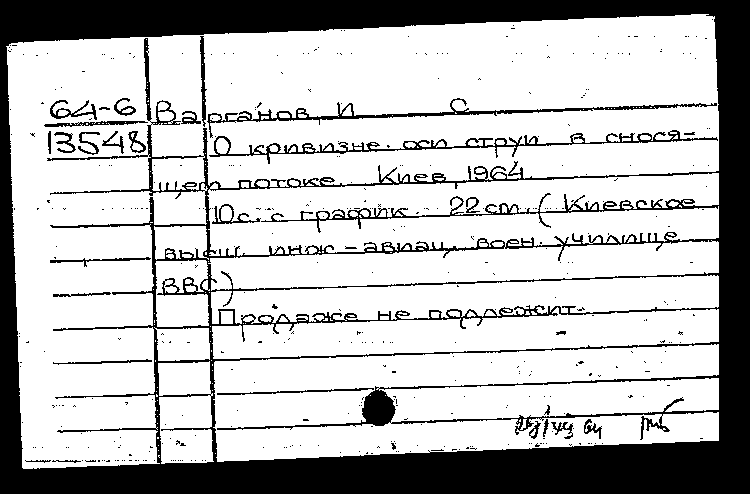 64-6 Варганов, И С
13548 О кривизне оси струи в снося-
щем потоке. Киев, 1964.
10с. с график. 22 см. (Киевское
высш. инж-авиац. воен. училище
ВВС)
Продаже не подлежит.